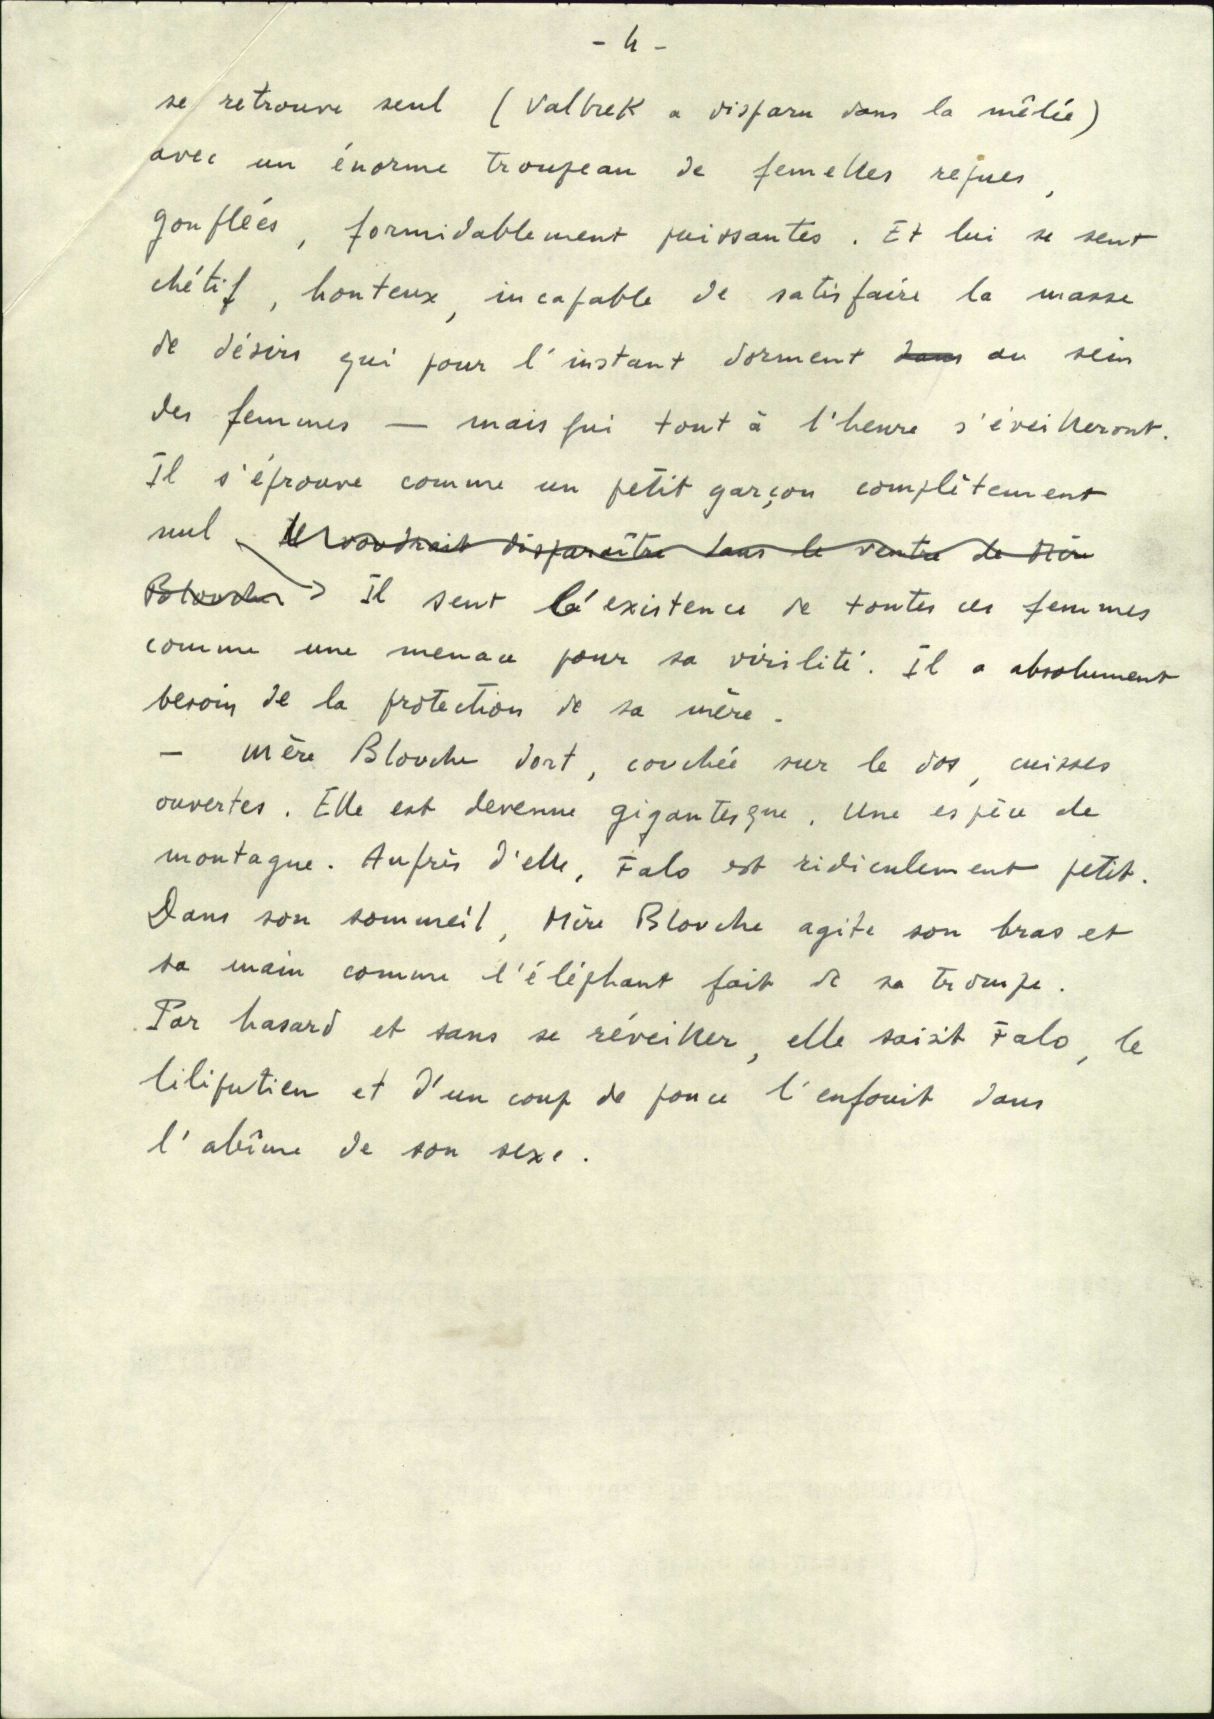 - 4 -
se retrouve seul (Valbrek a disparu dans la mêlée)
avec un énorme troupeau de femelles repues,
gonflées, formidablement puissantes. Et lui se sent
chétif, honteux, incapable de satisfaire la masse
de désirs qui pour l'instant dorment dans au sein
des femmes — mais qui tout à l'heure s'éveilleront.
Il s'éprouve comme un petit garçon complètement
nul. Il voudrait disparaître dans le ventre de Mère
Blouche Il sent l'existence de toutes ces femmes
comme une menace pour sa virilité. Il a absolument
besoin de la protection de sa mère.
— Mère Blouche dort, couchée sur le dos, cuisses
ouvertes. Elle est devenue gigantesque. Une espèce de
montagne. Auprès d'elle, Falo est ridiculement petit.
Dans son sommeil, Mère Blouche agite son bras et
sa main comme l'éléphant fait de sa trompe.
Par hasard et sans se réveiller, elle saisit Falo, le
liliputien et d'un coup de pouce l'enfouit dans
l'abîme de son sexe.